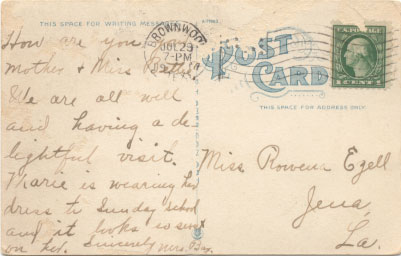 THIS SPACE FOR WRITING MESSAGES
How are you
mother & Miss
We are all well
and having a de-
lightful visit.
Marie is wearing her
dress to Sunday school
and it looks so sweet
on her. Sincerely Mrs.
BROWNWOOD
JUL 23
7-PM
POST
CARD
THIS SPACE FOR ADDRESS ONLY
Miss Rowena Ezell
Jena,
La.